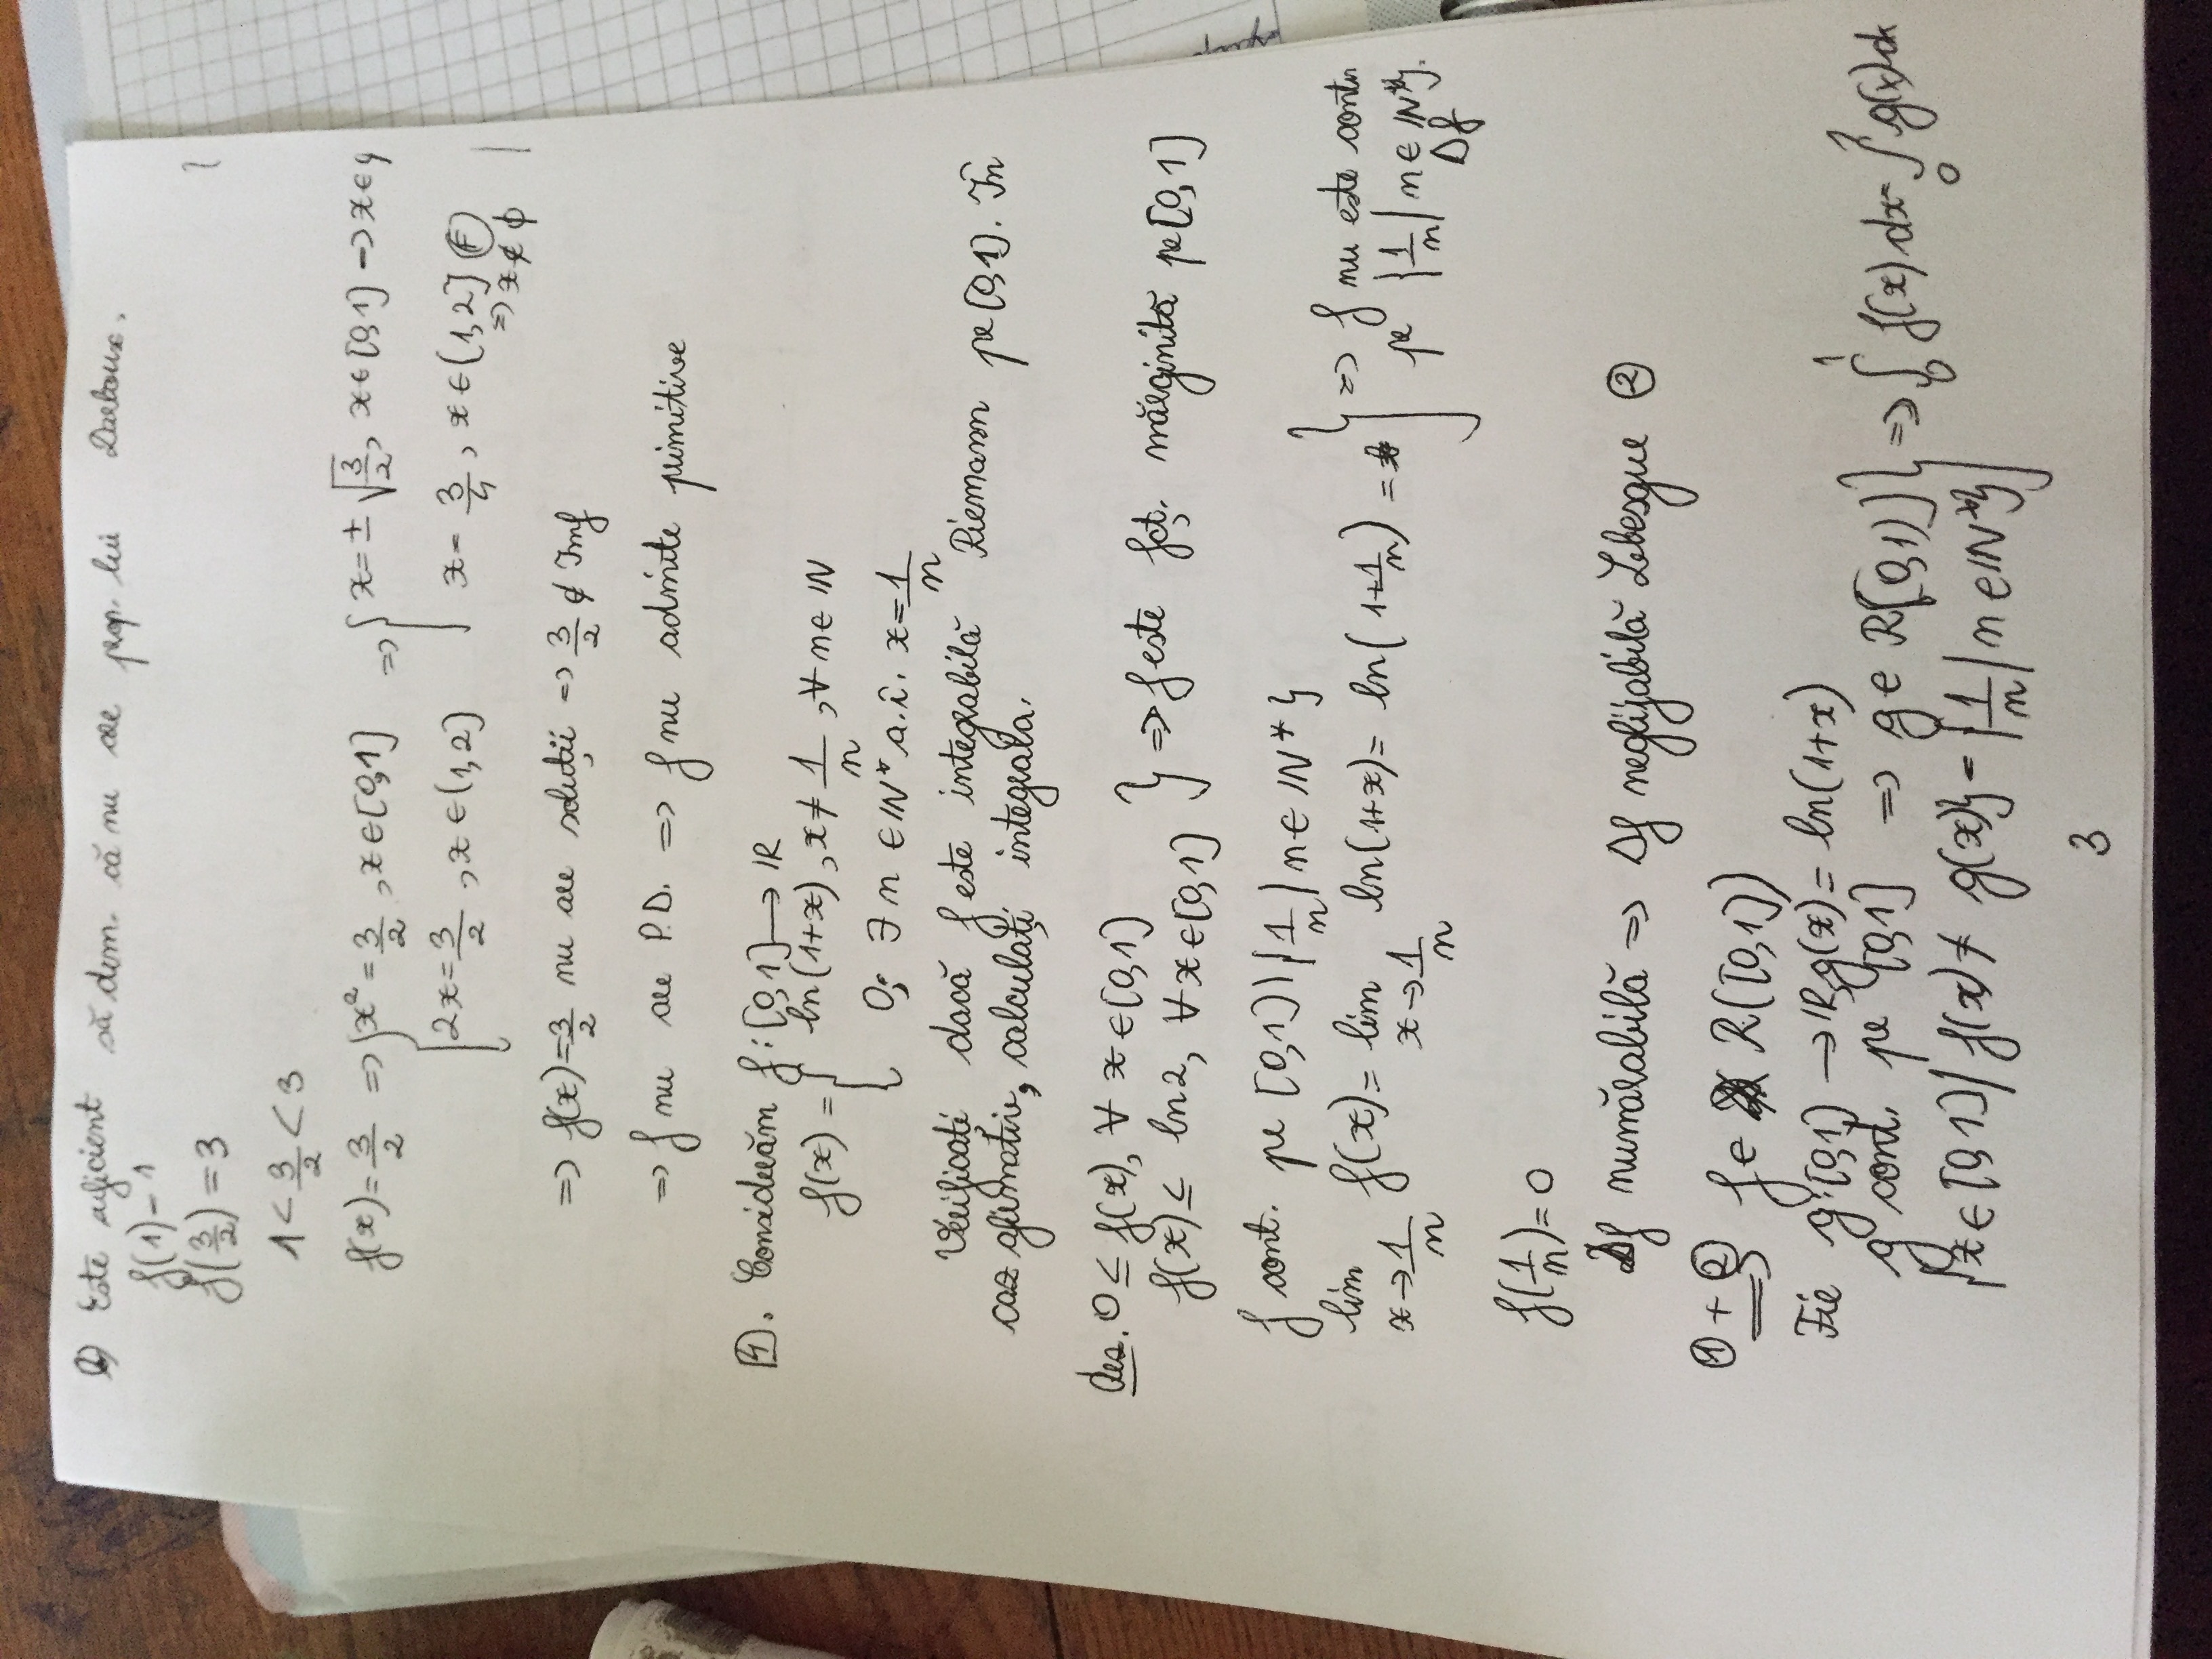 b) Este suficient să dem. că nu are prop. lui Darboux.
f(1) = 1
f(3/2) = 3
1 < 3/2 < 3
f(x) = 3/2 => { x² = 3/2, x ∈ [0,1] => { x = ± √(3/2), x ∈ [0,1] -> x ∈ φ
{ 2x = 3/2, x ∈ (1,2] x = 3/4, x ∈ (1,2] (F) => x ∉ φ
=> f(x) = 3/2 nu are soluții => 3/2 ∉ Imf
=> f nu are P.D. => f nu admite primitive
4. Considerăm f: [0,1] -> ℝ
f(x) = { ln(1+x), x ≠ 1/n, ∀ n ∈ ℕ
0; ∃ n ∈ ℕ* a.î. x = 1/n
Verificati dacă f este integrabilă Riemann pe [0,1]. În
caz afirmativ, calculați integrala.
Rez. 0 ≤ f(x), ∀ x ∈ [0,1]
f(x) ≤ ln2, ∀ x ∈ [0,1] } => f este fct. mărginită pe [0,1]
f cont. pe [0,1] \ { 1/n | n ∈ ℕ* }
lim x->1/n f(x) = lim x->1/n ln(1+x) = ln(1+1/n) ≠ } => f nu este contin pe { 1/n | n ∈ ℕ* }. Δf
f(1/n) = 0
Δf numărabilă => Δf neglijabilă Lebesgue ②
① + ② => f ∈ R([0,1])
Fie g: [0,1] -> ℝ g(x) = ln(1+x)
g cont. pe [0,1] => g ∈ R([0,1]) } => ∫₀¹ f(x) dx = ∫₀¹ g(x) dx
{ x ∈ [0,1] | f(x) ≠ g(x) } = { 1/n | n ∈ ℕ* }
3